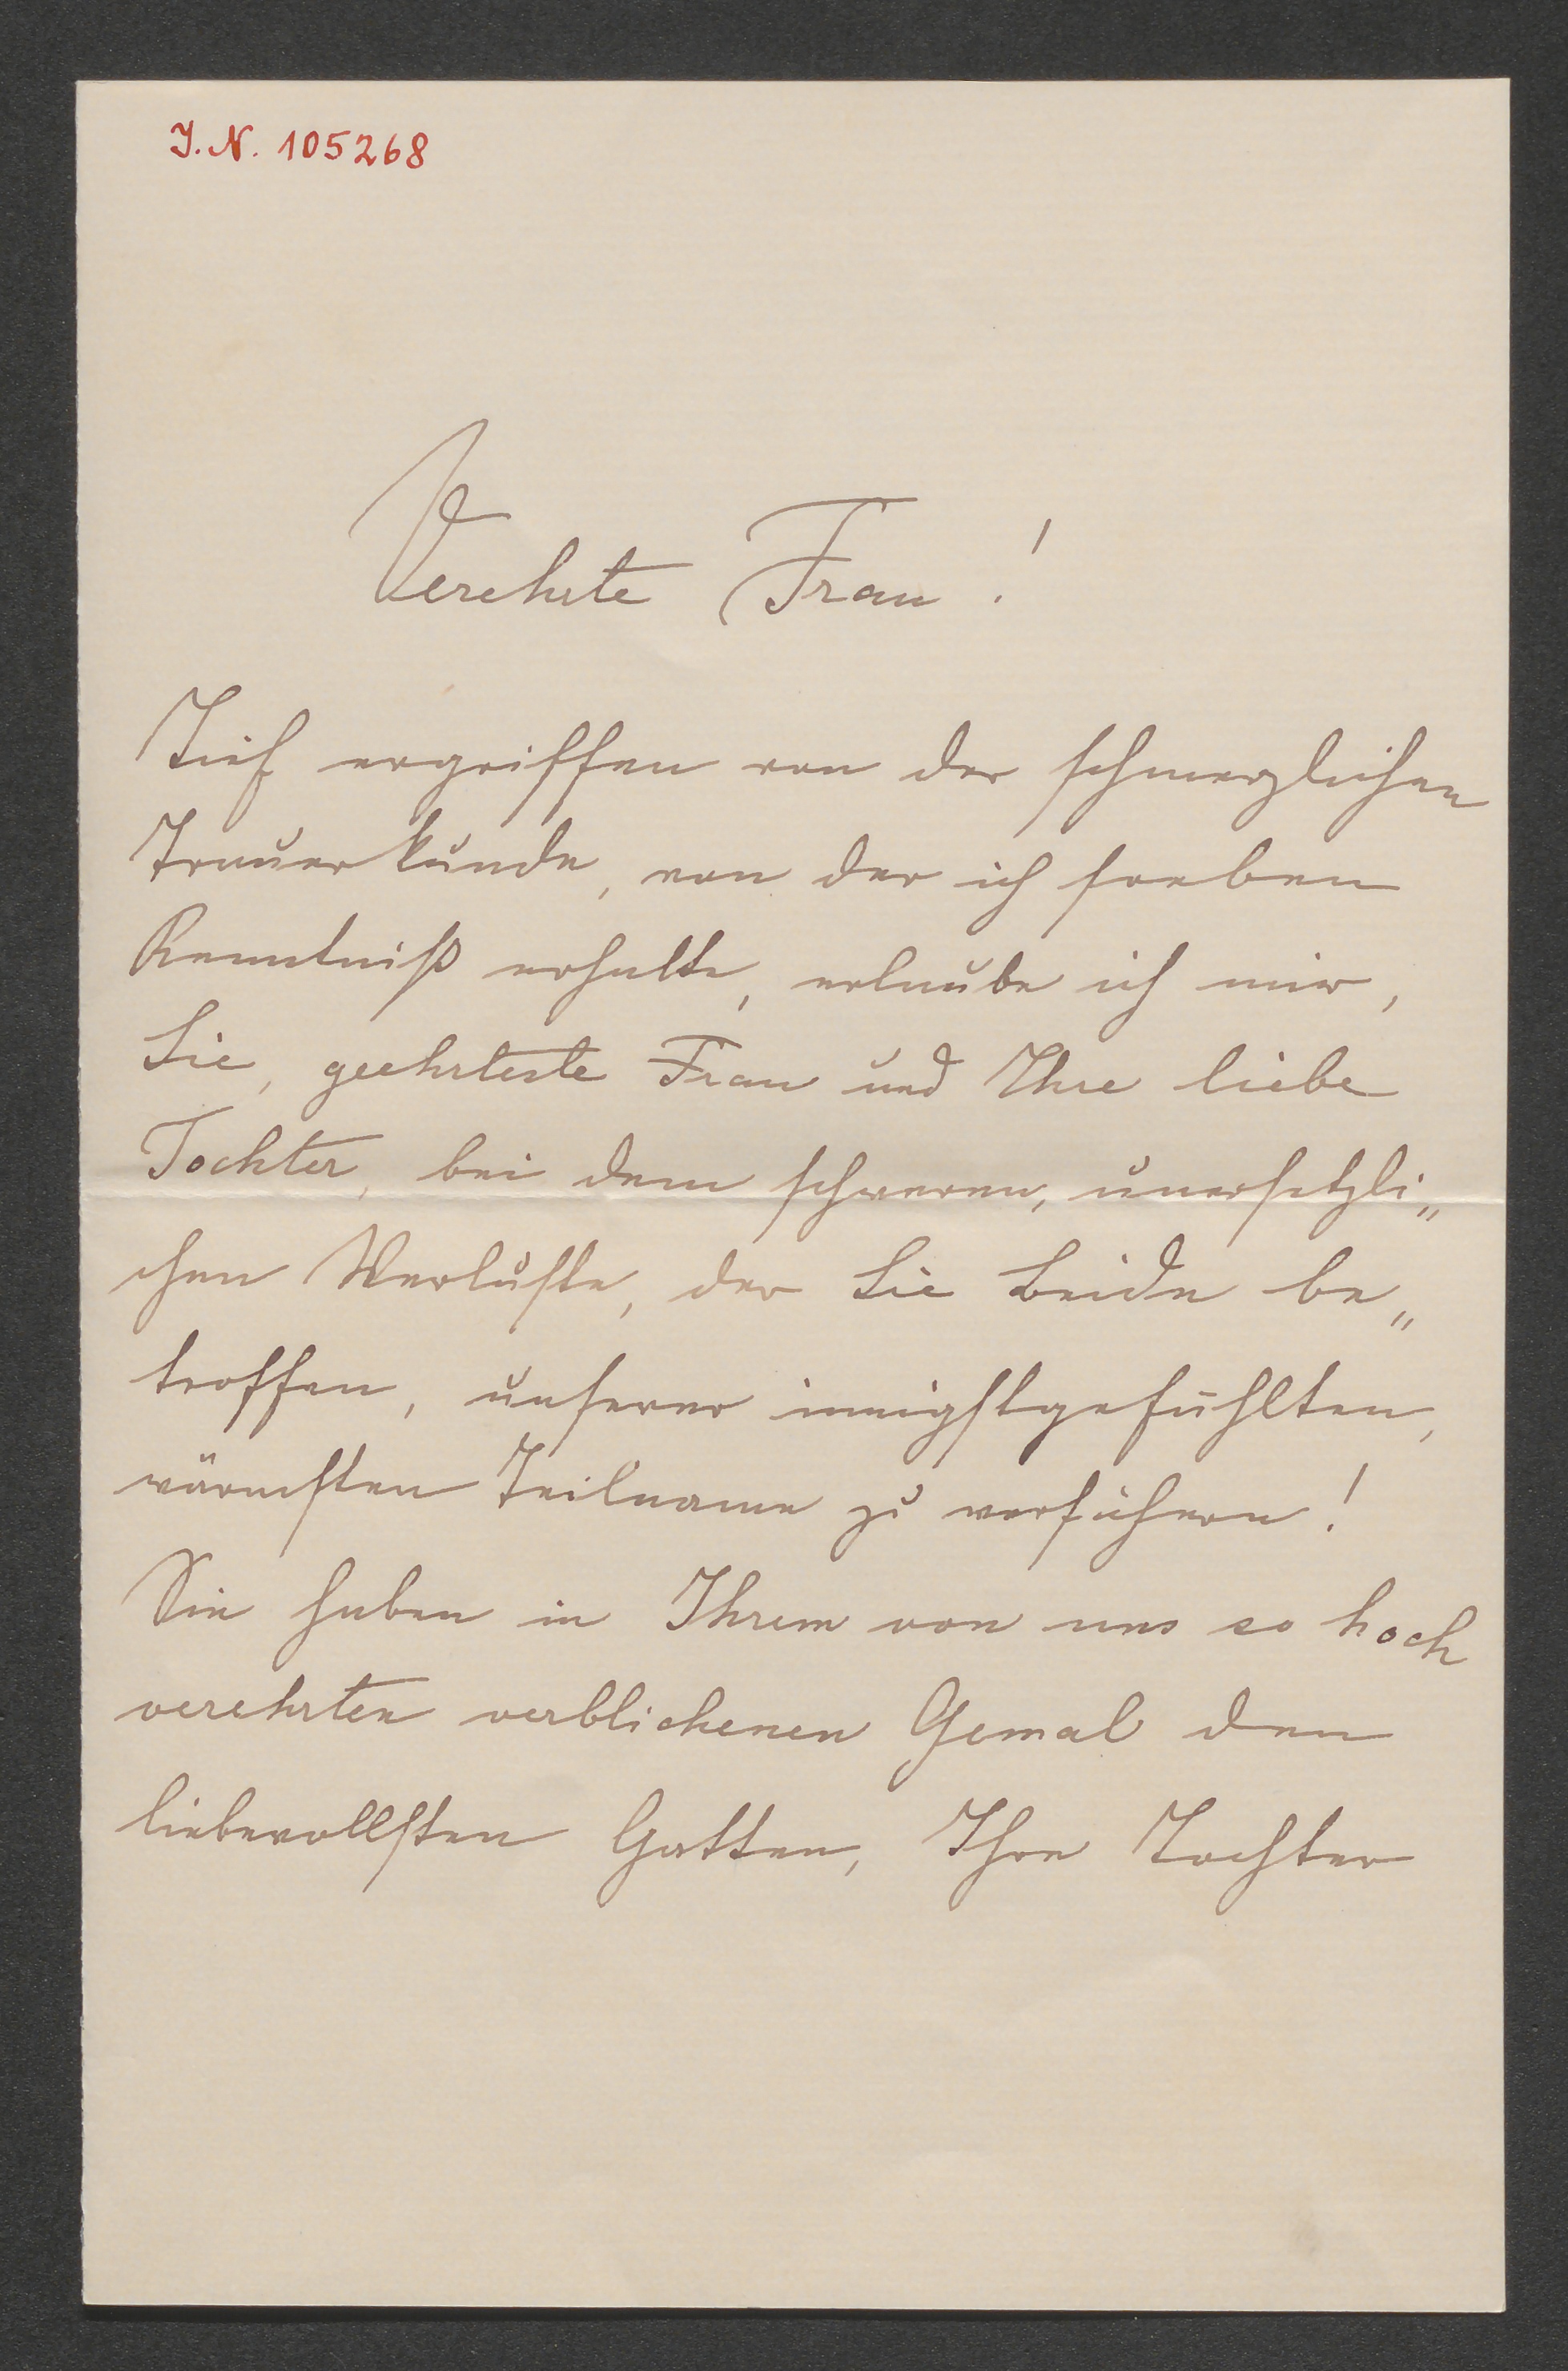 J. N. 105268
Verehrte Frau!
Tief ergriffen von der schmerzlichen
Trauerkunde, von der ich soeben
Kenntniß erhalte, erlaube ich mir,
Sie, geehrteste Frau und Ihre liebe
Tochter, bei dem schweren, unersetzli„
chen Verluste, der Sie Beide be„
troffen, unserer innigstgefühlten,
wärmsten Teilname zu versichern!
Sie haben in Ihrem von uns so hoch
verehrten verblichenen Gemal den
liebevollsten Gatten, Ihre Tochter